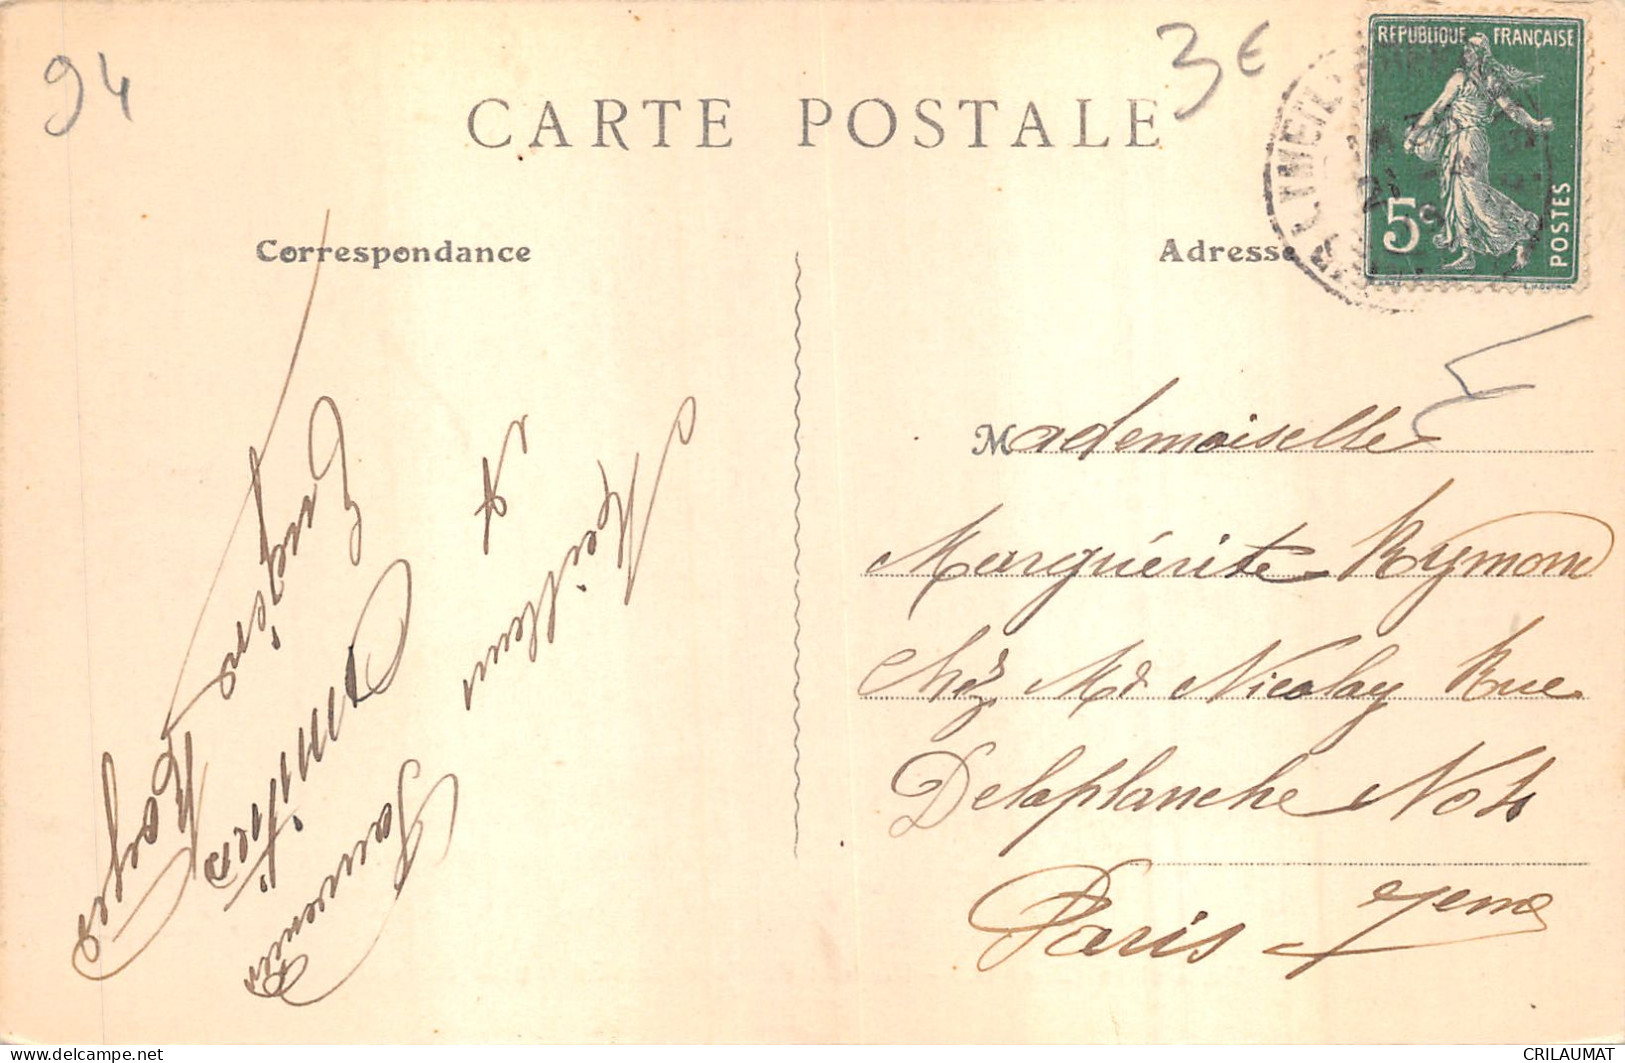 94
3 €
CARTE POSTALE
RÉPUBLIQUE FRANÇAISE
5c
POSTES
Correspondance
Adresse
Meilleur
Souvenir
Amitiés
Mademoiselle
Marguérite Rymond
Chéz Mr Nicolay Rue
Delaplanche No 4
Paris 7eme
CRILAUMAT